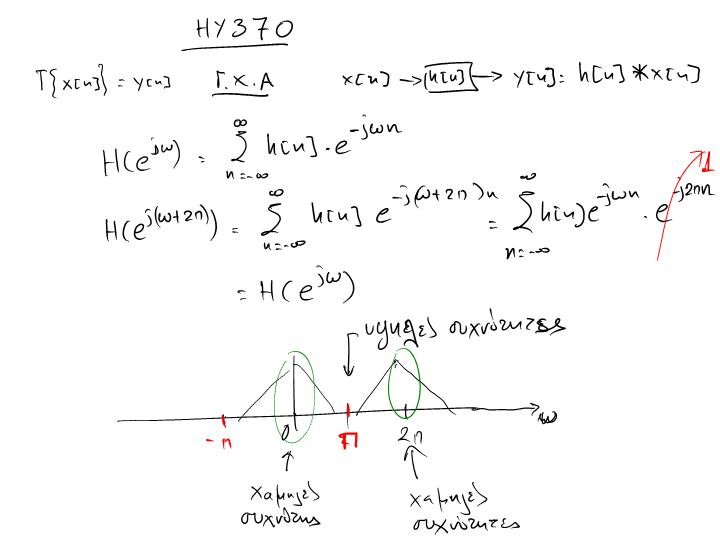 HY370
T{x[n]} = y[n] Γ.Χ.Α x[n] → h[n] → y[n] = h[n] * x[n]
H(e^{jω}) = \sum_{n=-∞}^{∞} h[n] · e^{-jωn}
H(e^{j(ω+2π)}) = \sum_{n=-∞}^{∞} h[n] e^{-j(ω+2π)n} = \sum_{n=-∞}^{∞} h[n] e^{-jωn} · e^{-j2πn} 1
= H(e^{jω})
υψηλές συχνότητες
-π 0 π 2π ω
χαμηλές χαμηλές
συχνότητες συχνότητες